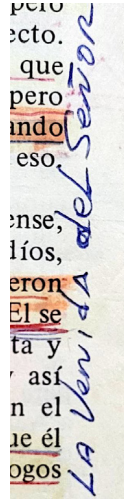 pero
ecto.
que
pero
ando
eso
ense,
díos,
eron
El se
ta y
así
n el
ue él
ogos
LA VenidA deL SeñoR